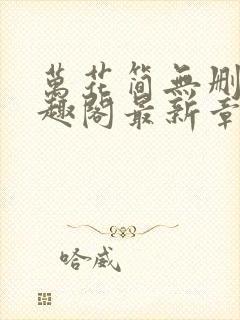 萬花简無删
趣閣最新章
哈威